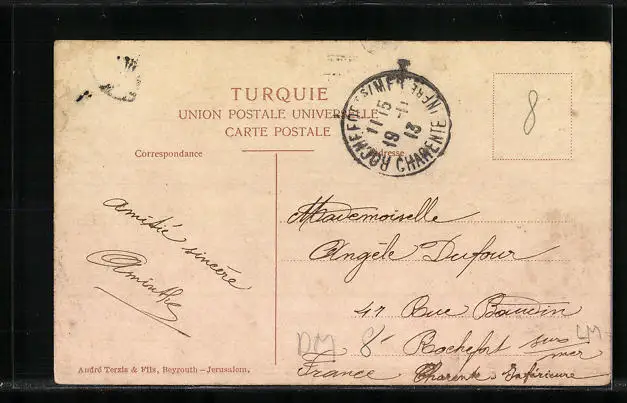 TURQUIE
UNION POSTALE UNIVERSELLE
CARTE POSTALE
Correspondance
Adresse
ROCHEFORT S/MER
CHARENTE INFRE
11-15
19-1
13
8
Amitié sincère
Mademoiselle
Angèle Dufour
41 Rue Baudin
Rochefort sur
mer
France Charente Inférieure
DM 8
André Terzis & Fils, Beyrouth—Jerusalem.